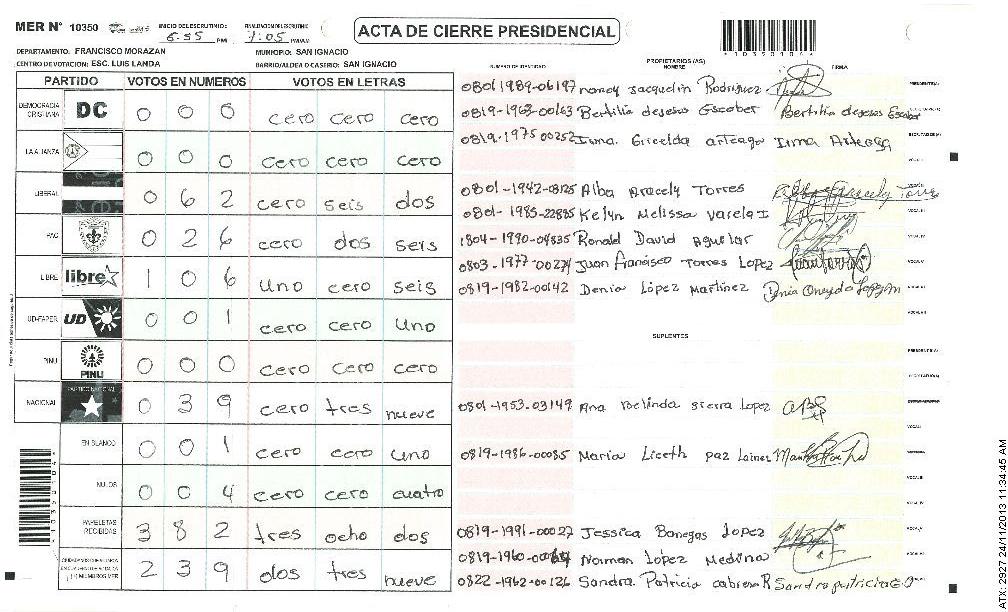 MER Nº 10350
INICIO DEL ESCRUTINIO: 6:55 PM
FINALIZACION DEL ESCRUTINIO 7:05 PM/AM
ACTA DE CIERRE PRESIDENCIAL
DEPARTAMENTO: FRANCISCO MORAZAN
MUNICIPIO: SAN IGNACIO
CENTRO DE VOTACION: ESC. LUIS LANDA
BARRIO/ALDEA O CASERIO: SAN IGNACIO
PARTIDO VOTOS EN NUMEROS VOTOS EN LETRAS
DEMOCRACIA CRISTIANA DC 0 0 0 cero cero cero
LA ALIANZA 0 0 0 cero cero cero
LIBERAL 0 6 2 cero seis dos
PAC 0 2 6 cero dos seis
LIBRE libre 1 0 6 uno cero seis
UD-FAPER UD 0 0 1 cero cero uno
PINU PINU 0 0 0 cero cero cero
NACIONAL PARTIDO NACIONAL 0 3 9 cero tres nueve
EN BLANCO 0 0 1 cero cero uno
NULOS 0 0 4 cero cero cuatro
PAPELETAS RECIBIDAS 3 8 2 tres ocho dos
2 3 9 dos tres nueve
PROPIETARIOS (AS)
NUMERO DE IDENTIDAD NOMBRE FIRMA
0801 1989-06197 nancy Jacquelin Rodriguez
0819-1963-00163 Bertilia desesos Escober Bertilia desesos Escober
0819-1975 00252 Irma. Gricelda arteaga Irma Arteaga
0801-1942-03125 Alba Aracely Torres
0801-1985-22895 Kelyn Melissa Varela I
1804-1990-04835 Ronald David Aguilar
0803-1977-00274 Juan francisco Torres Lopez
0819-1982-00142 Denia López Martínez
SUPLENTES
0801-1953-03149 Ana Belinda Sierra Lopez
0819-1986-00085 Maria Liceth paz Lainez
0819-1991-00027 Jessica Banegas Lopez
Norman López Medina
0822-1962-00126 Sandra Patricia cabrera R
ATX: 2927 24/11/2013 11:34:45 AM